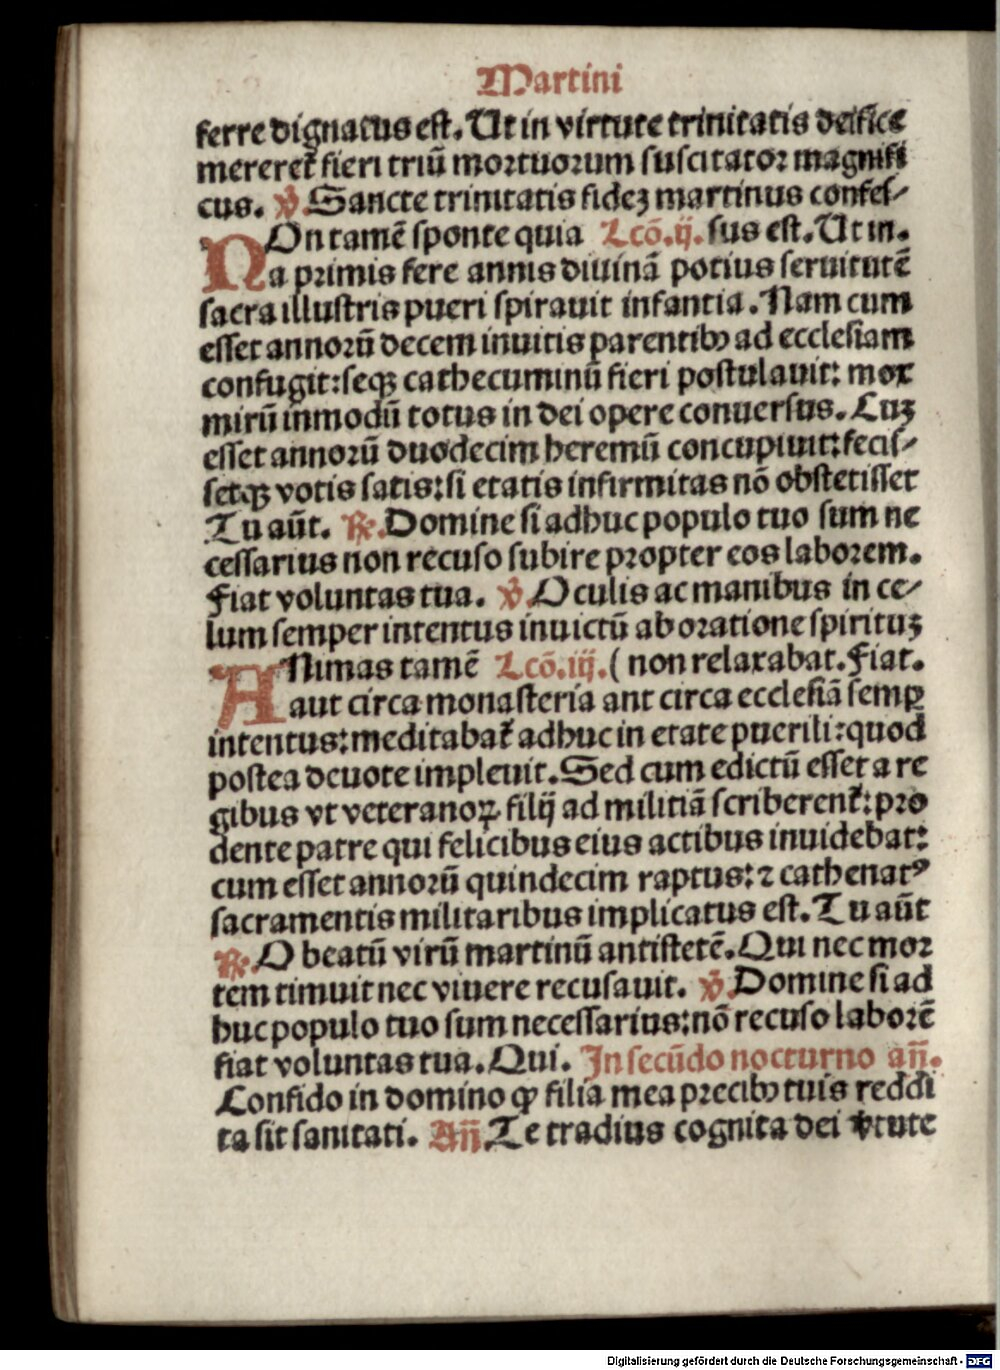 Martini
ferre dignatus est. Ut in virtute trinitatis deifice
mereret᷑ fieri triū mortuorum suscitator magnifi
cus. ℣. Sancte trinitatis fideʒ martinus confes⸗
NOn tamē sponte quia Lcō.ij. sus est. Ut in.
a primis fere annis diuinā potius seruitutē
sacra illustris pueri spirauit infantia. Nam cum
esset annorū decem inuitis parentibꝰ ad ecclesiam
confugit: seqꝫ cathecuminū fieri postulauit: mox
mirū inmodū totus in dei opere conuersus. Cuʒ
esset annorū duodecim heremū concupiuit: fecis⸗
setqꝫ votis satis: si etatis infirmitas nō obstetisset
Tu aūt. ℟. Domine si adhuc populo tuo sum ne
cessarius non recuso subire propter eos laborem.
Fiat voluntas tua. ℣. Oculis ac manibus in ce⸗
lum semper intentus inuictū ab oratione spirituʒ
ANimas tamē Lcō.iij. ( non relaxabat. Fiat.
aut circa monasteria ant circa ecclesiā semꝑ
intentus: meditabat᷑ adhuc in etate puerili: quod
postea deuote impleuit. Sed cum edictū esset a re
gibus vt veteranoꝝ filij ad militiā scriberent᷑: pro
dente patre qui felicibus eius actibus inuidebat:
cum esset annorū quindecim raptus: ⁊ cathenatꝰ
sacramentis militaribus implicatus est. Tu aūt
℟. O beatū virū martinū antistetē. Qui nec mor
tem timuit nec viuere recusauit. ℣. Domine si ad
huc populo tuo sum necessarius: nō recuso laborē
fiat voluntas tua. Qui. In secūdo nocturno añ.
Confido in domino ꝙ filia mea precibꝰ tuis reddi
ta sit sanitati. Añ. Te tradius cognita dei v̓tute
Digitalisierung gefördert durch die Deutsche Forschungsgemeinschaft - DFG